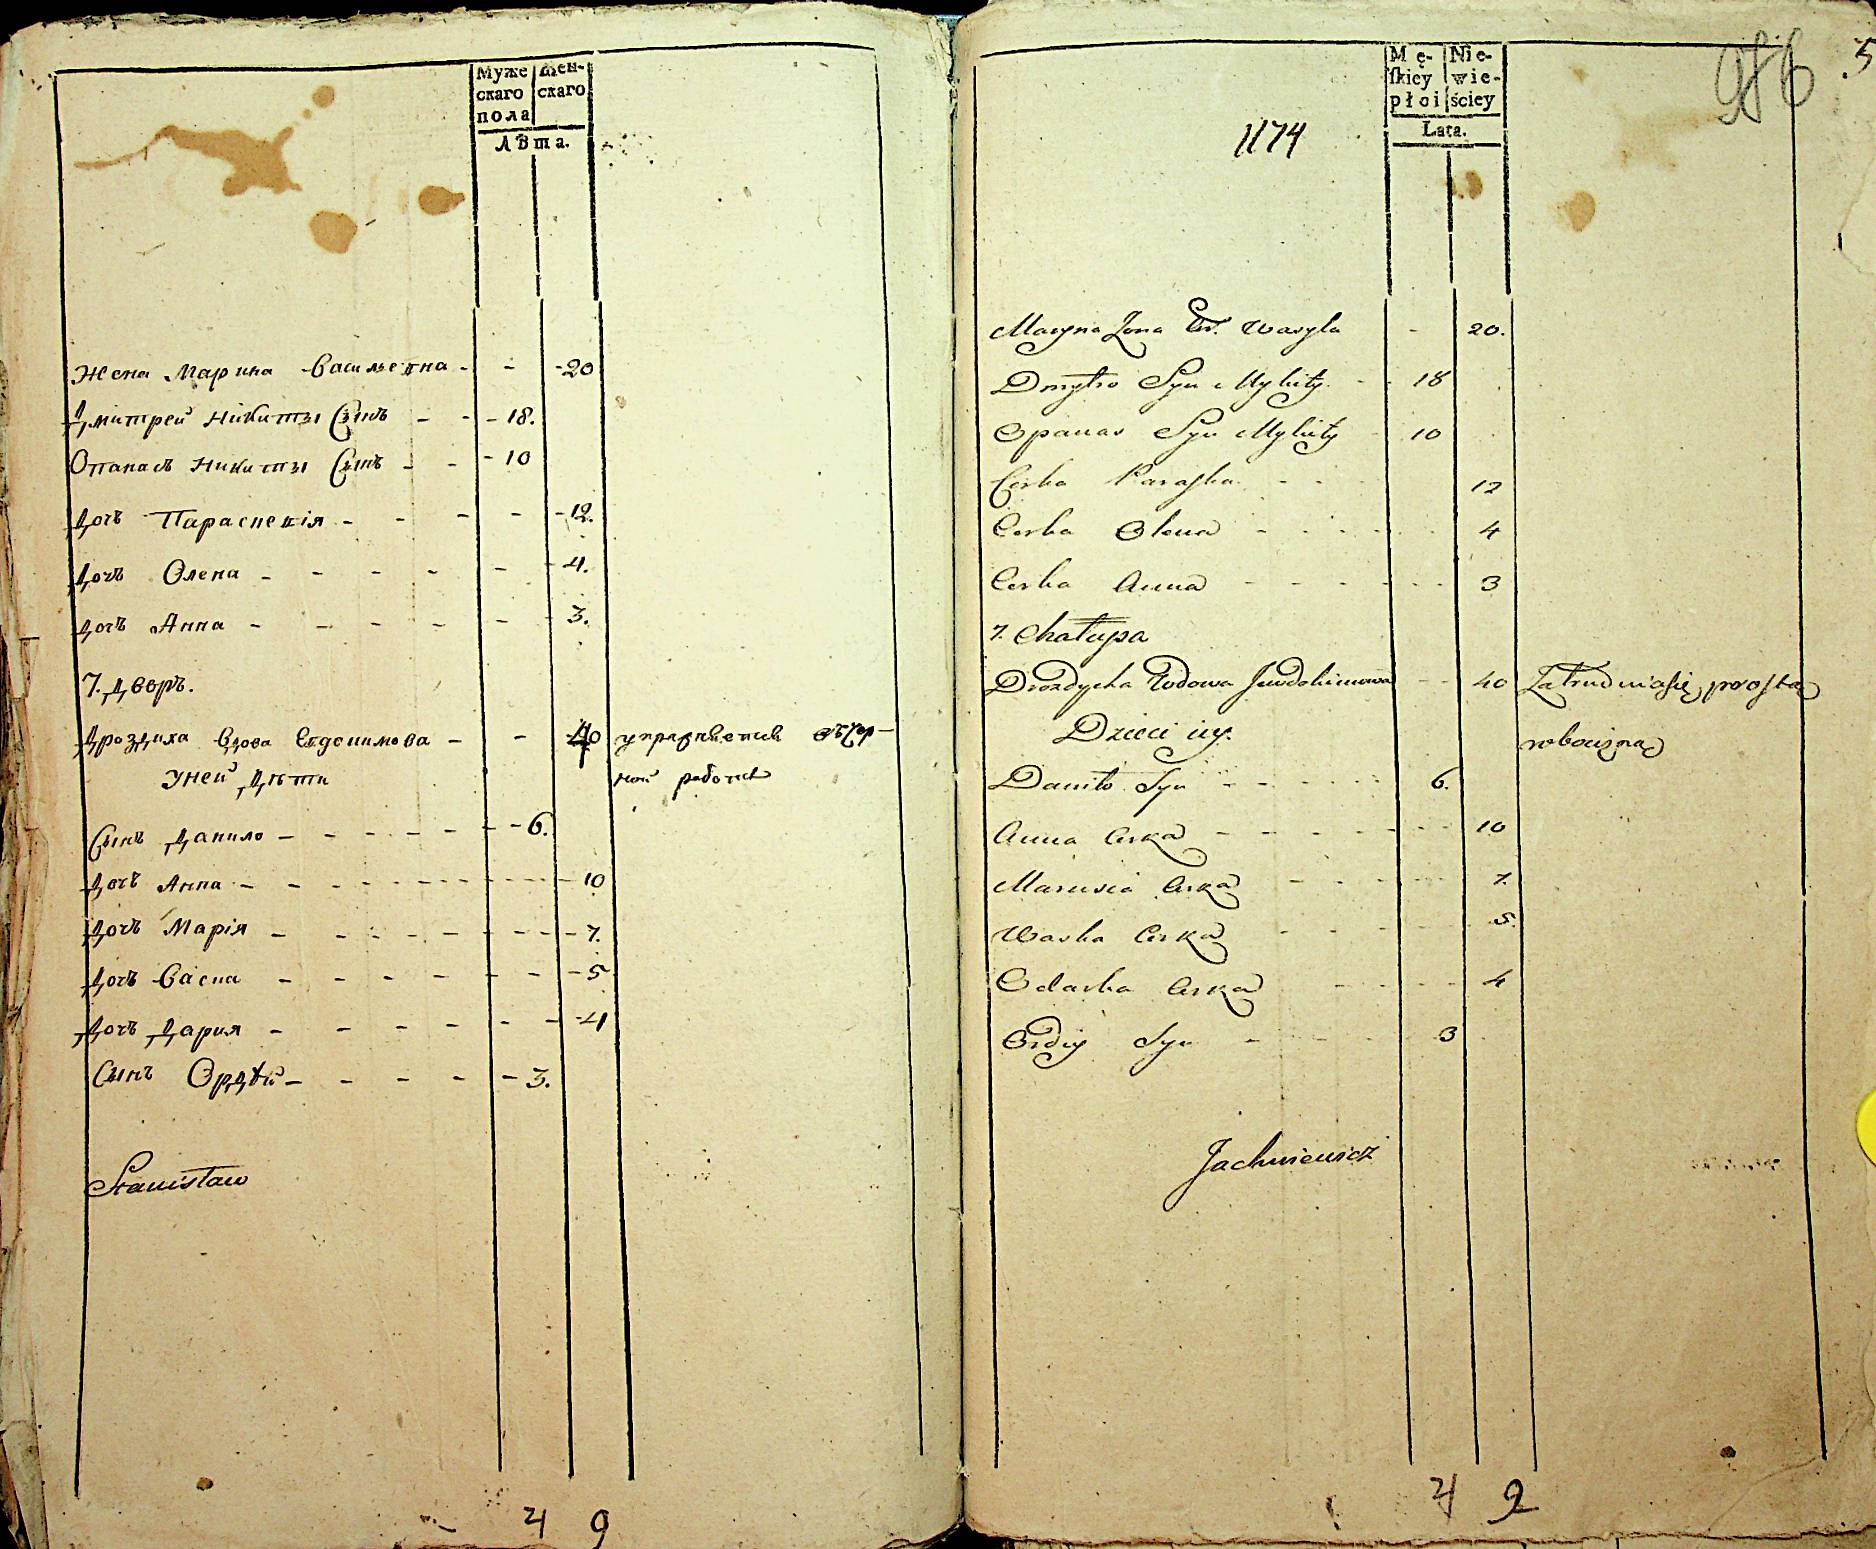 Муже
скаго
пола
Жен-
скаго
ЛѢта.
Жена Марина Васильевна - - - 20
Дмитрей Никиты Сынъ - - - 18.
Опанасъ Никиты Сынъ - - - 10
дочь Параскевія - - - - - 12.
дочь Олена - - - - - - 4.
дочь Анна - - - - - - 3.
7. дворъ.
Дроздиха вдова Евдокимова - - 40 упражняется въ чер-
ной работе
у ней дѣти
Сынъ Данило - - - - - - 6.
дочь Анна - - - - - - 10
дочь Марія - - - - - - 7.
дочь Васка - - - - - - 5
дочь Дария - - - - - - 4
Сынъ Ордѣй - - - - - 3.
Stanisław
4 9
986 5
Mę-
skiey
płci
Nie-
wie-
ściey
Lata.
1174
Maryna Zona Wasyla - 20.
Dmytro Syn Mykity - - 18
Opanas Syn Mykity - 10
Corka Paraska - - - 12
Corka Olena - - - - 4
Corka Anna - - - - 3
7. Chałupa
Drozdycha Wdowa Jewdokimowa - - 40 Zatrudnia się prostą
robocizną
Dzieci iey.
Daniło Syn - - - - 6.
Anna Corka - - - - 10
Marusia Corka - - - - 7.
Waska Corka - - - - 5.
Odarka Corka - - - - 4
Ordiy Syn - - - 3
Jachniewicz
4 9